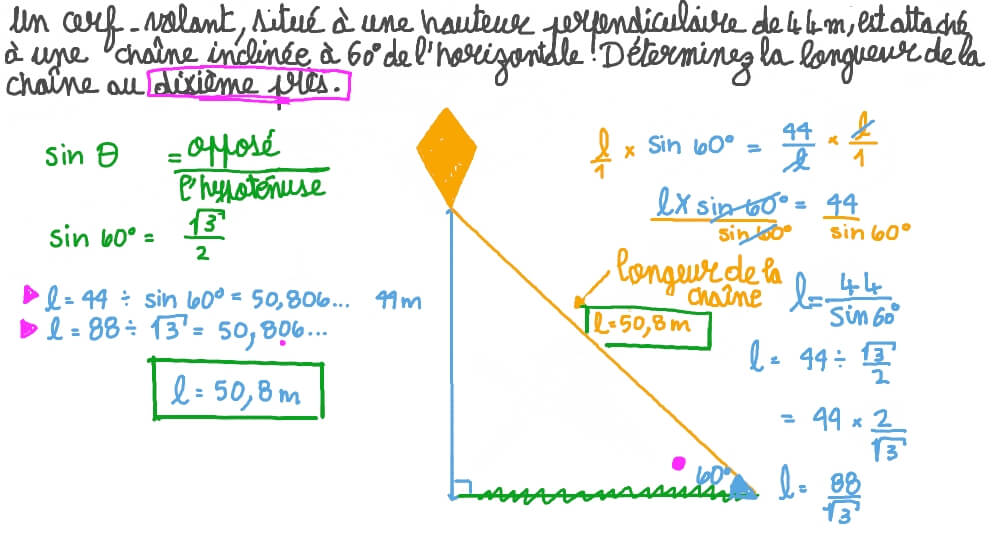 Un cerf-volant, situé à une hauteur perpendiculaire de 44 m, est attaché
à une chaîne inclinée à 60° de l'horizontale. Déterminez la longueur de la
chaîne au dixième près.
sin θ = opposé / l'hypoténuse
sin 60° = √3 / 2
l = 44 ÷ sin 60° = 50,806...
l = 88 ÷ √3 = 50,806...
l = 50,8 m
44 m
longeur de la
chaîne
l = 50,8 m
60°
l/1 × sin 60° = 44/l × l/1
l × sin 60° / sin 60° = 44 / sin 60°
l = 44 / sin 60°
l = 44 ÷ √3/2
= 44 × 2/√3
l = 88/√3